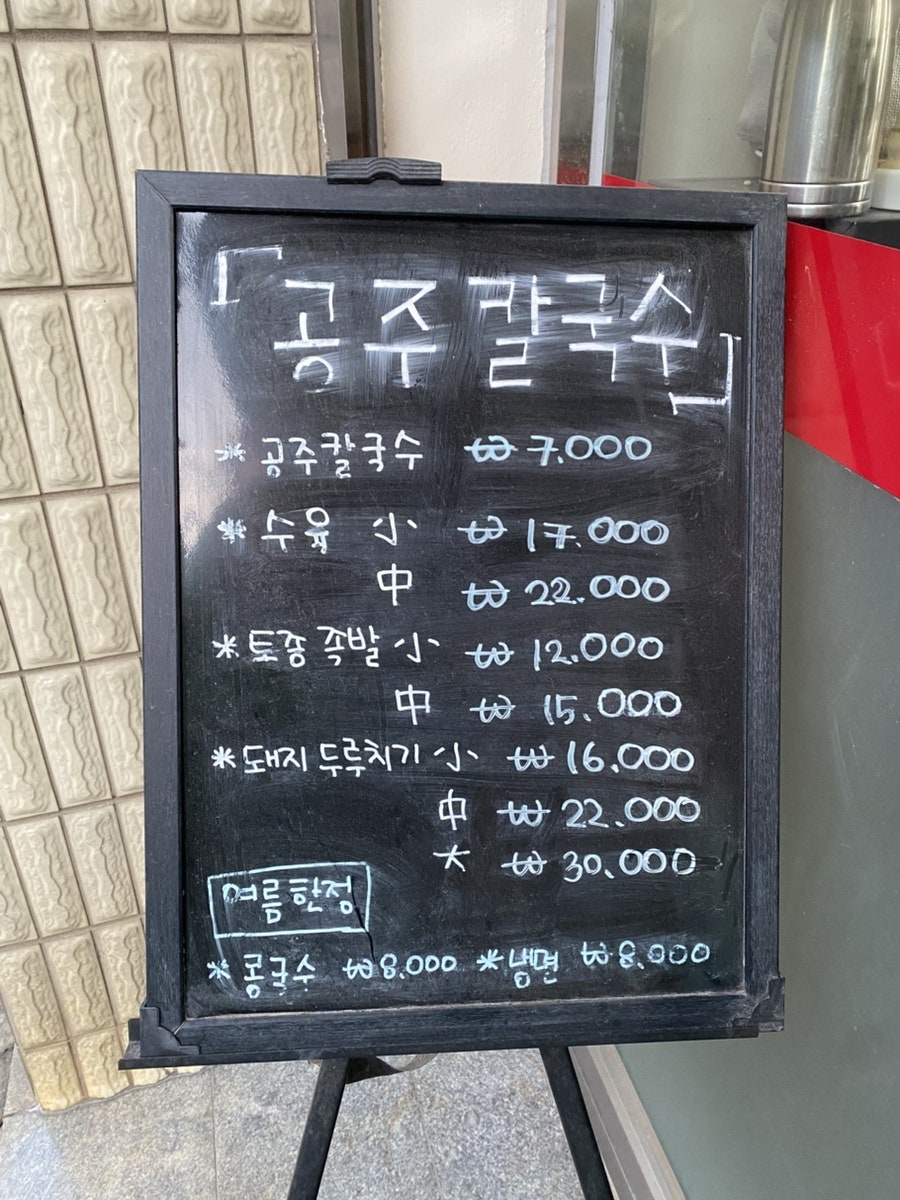 「공주칼국수」
* 공주칼국수 ₩ 7.000
* 수육 小 ₩ 17.000
中 ₩ 22.000
* 토종 족발 小 ₩ 12.000
中 ₩ 15.000
* 돼지 두루치기 小 ₩ 16.000
中 ₩ 22.000
大 ₩ 30.000
여름한정
* 콩국수 ₩ 8.000 * 냉면 ₩ 8.000